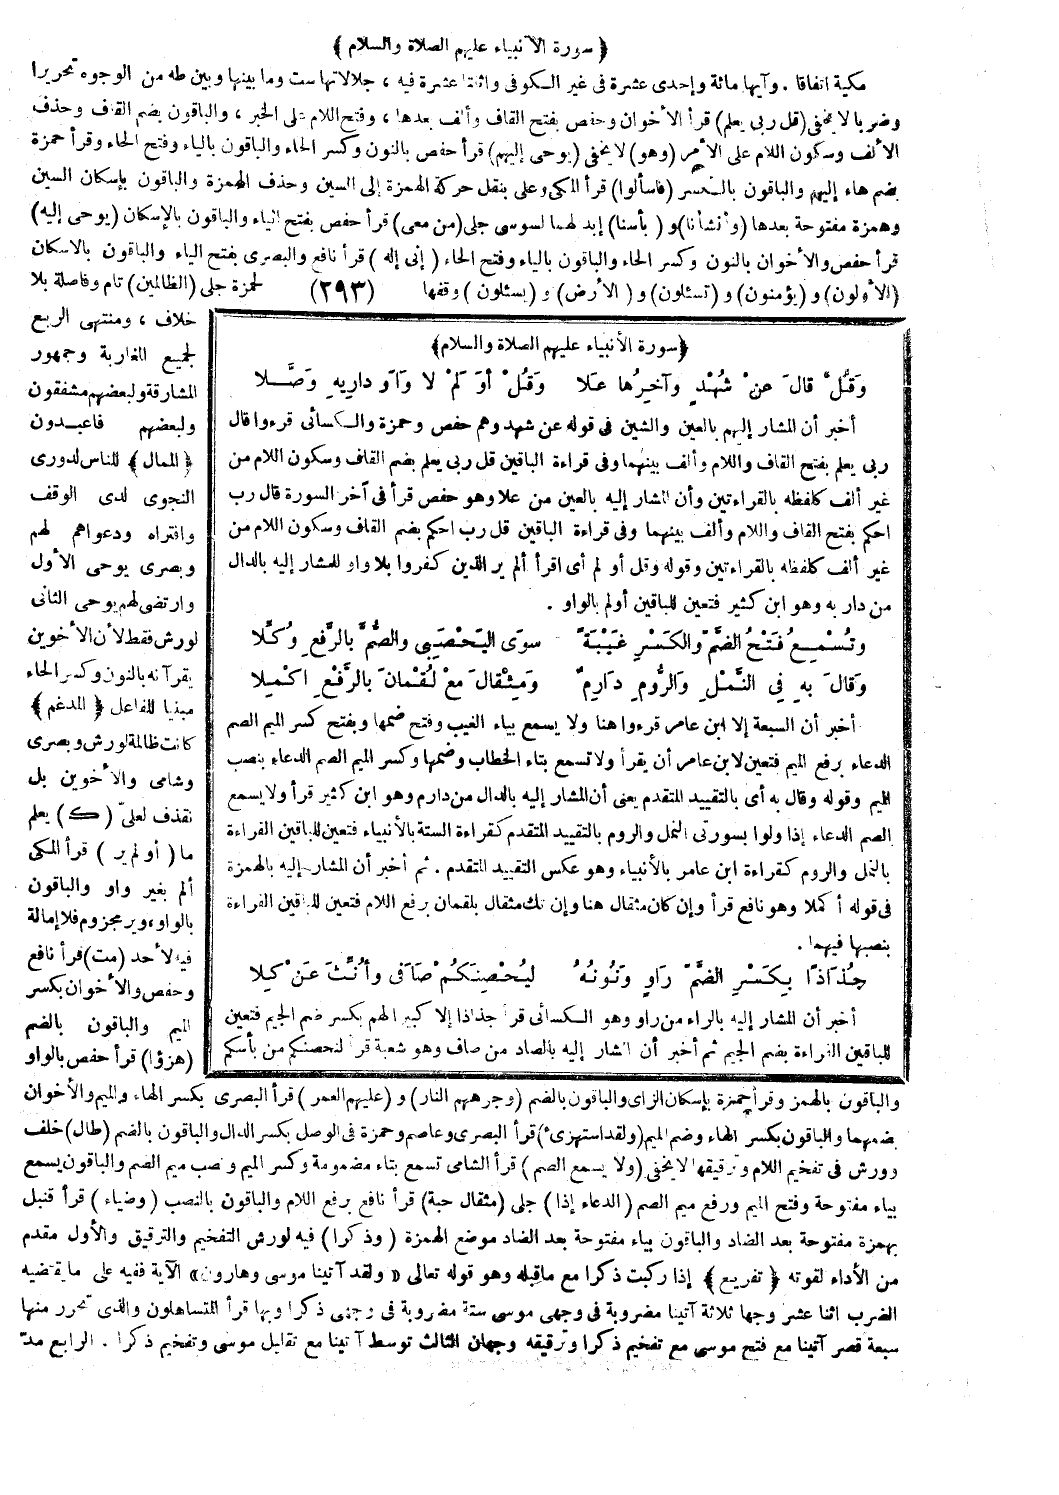 ﴿ سورة الأنبياء عليهم الصلاة والسلام ﴾
مكية اتفاقا . وآيها مائة وإحدى عشرة فى غير الكوفى واثنتا عشرة فيه ، جلالاتها ست وما بينها وبين طه من الوجوه تحريرا
وضربا لا يخفى (قل ربى يعلم) قرأ الأخوان وحفص بفتح القاف وألف بعدها ، وفتح اللام على الخبر ، والباقون بضم القاف وحذف
الألف وسكون اللام على الأمر (وهو) لا يخفى (يوحى إليهم) قرأ حفص بالنون وكسر الحاء والباقون بالياء وفتح الحاء وقرأ حمزة
بضم هاء إليهم والباقون بالكسر (فاسألوا) قرأ المكى وعلى بنقل حركة الهمزة إلى السين وحذف الهمزة والباقون بإسكان السين
وهمزة مفتوحة بعدها (وأنشأنا) و (بأسنا) إبدالهما لسوسى جلى (من معى) قرأ حفص بفتح الياء والباقون بالإسكان (يوحى إليه)
قرأ حفص والأخوان بالنون وكسر الحاء والباقون بالياء وفتح الحاء ( إنى إله ) قرأ نافع والبصرى بفتح الياء والباقون بالاسكان
(الأولون) و (يؤمنون) و (تسئلون) و ( الأرض) و (يسئلون ) وقفها (٢٩٣) لحمزة جلى (الظالمين) تام وفاصلة بلا
خلاف ، ومنتهى الربع
لجميع المغاربة وجمهور
المشارقة ولبعضهم مشفقون
ولبعضهم فاعبدون
﴿ الممال ﴾ للناس لدورى
النجوى لدى الوقف
وافتراه ودعواهم لهم
وبصرى يوحى الأول
وارتضى لهم يوحى الثانى
لورش فقط لأن الأخوين
يقرآنه بالنون وكسر الحاء
مبنيا للفاعل ﴿ المدغم ﴾
كانت ظالمة لورش وبصرى
وشامى والأخوين بل
نقذف لعلىّ ( ك ) يعلم
ما ( أو لم ير ) قرأ المكى
ألم بغير واو والباقون
بالواو ، وير مجزوم فلا إمالة
فيه لأحد (مت) قرأ نافع
وحفص والأخوان بكسر
الميم والباقون بالضم
(هزؤا) قرأ حفص بالواو
﴿سورة الأنبياء عليهم الصلاة والسلام﴾
وَقُلْ قَالَ عَنْ شُهْدٍ وَآخِرُهَا عَلا وَقُلْ أَوَ لَمْ لا وَاوَ دَارِيهِ وَصَّلا
أخبر أن المشار إليهم بالعين والشين فى قوله عن شهد وهم حفص وحمزة والكسائى قرءوا قال
ربى يعلم بفتح القاف واللام وألف بينهما وفى قراءة الباقين قل ربى يعلم بضم القاف وسكون اللام من
غير ألف كلفظه بالقراءتين وأن المشار إليه بالعين من علا وهو حفص قرأ فى آخر السورة قال رب
احكم بفتح القاف واللام وألف بينهما وفى قراءة الباقين قل رب احكم بضم القاف وسكون اللام من
غير ألف كلفظه بالقراءتين وقوله وقل أو لم أى اقرأ ألم ير الذين كفروا بلا واو للمشار إليه بالدال
من داريه وهو ابن كثير فتعين للباقين أولم بالواو .
وَتُسْمِعُ فَتْحُ الضَّمِّ وَالكَسْرِ غَيْبَةً سِوَى اليَحْصُبِى وَالصُّمُّ بِالرَّفْعِ وُكِّلا
وَقَالَ بِهِ فِي النَّمْلِ وَالرُّومِ دَارِمٌ وَمِثْقَالَ مَعْ لُقْمَانَ بِالرَّفْعِ اكْمِلا
أخبر أن السبعة إلا ابن عامر قرءوا هنا ولا يسمع بياء الغيب وفتح ضمها وبفتح كسر الميم الصم
الدعاء برفع الميم فتعين لابن عامر أن يقرأ ولا تسمع بتاء الخطاب وضمها وكسر الميم الصم الدعاء بنصب
الميم وقوله وقال به أى بالتقييد المتقدم يعنى أن المشار إليه بالدال من دارم وهو ابن كثير قرأ ولا يسمع
الصم الدعاء إذا ولوا بسورتى النمل والروم بالتقييد المتقدم كقراءة الستة بالأنبياء فتعين للباقين القراءة
بالنمل والروم كقراءة ابن عامر بالأنبياء وهو عكس التقييد المتقدم . ثم أخبر أن المشار إليه بالهمزة
فى قوله أكملا وهو نافع قرأ وإن كان مثقال هنا وإن تك مثقال بلقمان برفع اللام فتعين للباقين القراءة
بنصبها فيهما .
جُذَاذًا بِكَسْرِ الضَّمِّ رَاوٍ وَنُونُهُ لِيُحْصِنَكُمْ صَافَى وَأُنِّثَ عَنْ كِلا
أخبر أن المشار إليه بالراء من راو وهو الكسائى قرأ جذاذا إلا كبير الهم بكسر ضم الجيم فتعين
للباقين القراءة بضم الجيم ثم أخبر أن المشار إليه بالصاد من صاف وهو شعبة قرأ لنحصنكم من بأسكم
والباقون بالهمز وقرأ حمزة بإسكان الزاى والباقون بالضم (وجوههم النار) و (عليهم العمر ) قرأ البصرى بكسر الهاء والميم والأخوان
بضمهما والباقون بكسر الهاء وضم الميم (ولقد استهزئ) قرأ البصرى وعاصم وحمزة فى الوصل بكسر الدال والباقون بالضم (طال) خلف
وورش فى تفخيم اللام وترقيقها لا يخفى (ولا يسمع الصم ) قرأ الشامى تسمع بتاء مضمومة وكسر الميم ونصب ميم الصم والباقون يسمع
بياء مفتوحة وفتح الميم ورفع ميم الصم (الدعاء إذا ) جلى (مثقال حبة) قرأ نافع برفع اللام والباقون بالنصب (وضياء ) قرأ قنبل
بهمزة مفتوحة بعد الضاد والباقون بياء مفتوحة بعد الضاد موضع الهمزة ( وذكرا ) فيه لورش التفخيم والترقيق والأول مقدم
من الأداء لقوته ﴿ تفريع ﴾ إذا ركبت ذكرا مع ما قبله وهو قوله تعالى « ولقد آتينا موسى وهارون» الآية ففيه على ما يقتضيه
الضرب اثنا عشر وجها ثلاثة آتينا مضروبة فى وجهى موسى ستة مضروبة فى وجهى ذكرا وبها قرأ المتساهلون والذى تحرر منها
سبعة قصر آتينا مع فتح موسى مع تفخيم ذكرا وترقيقه وجهان الثالث توسط آتينا مع تقليل موسى وتفخيم ذكرا . الرابع مدّ